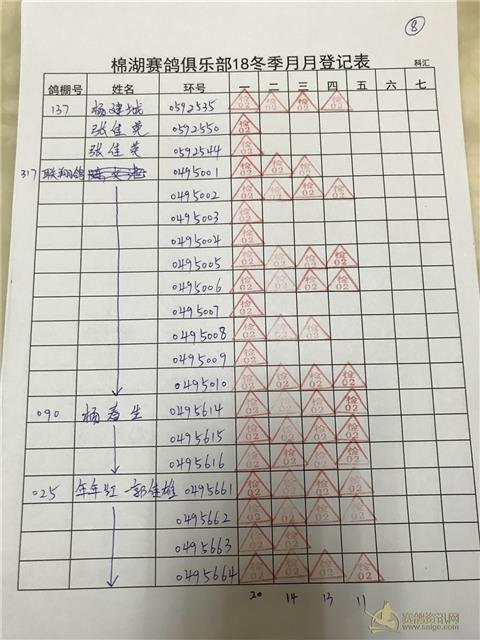 ⑧
棉湖赛鸽俱乐部18冬季月月登记表 科汇
鸽棚号 姓名 环号 一 二 三 四 五 六 七
137 杨建城 0592535 检02 检02 检02 检02
张佳英 0592550 检02
张佳英 0592544 检02
317 联翔鸽 0495001 检02 检02 检02
0495002 检02 检02 检02 检02
0495003 检02
0495004 检02
0495005 检02 检02 检02 检02
0495006 检02 检02 检02 检02
0495007 检02
0495008 检02 检02 检02
0495009 检02
0495010 检02 检02 检02 检02
090 杨春生 0495614 检02 检02 检02 检02
0495615 检02 检02 检02 检02
0495616 检02 检02 检02 检02
025 年年红-郭佳雄 0495661 检02 检02 检02 检02
0495662 检02 检02 检02 检02
0495663 检02 检02
0495664 检02 检02 检02 检02
20 14 13 11
赛鸽资讯网
www.saige.com